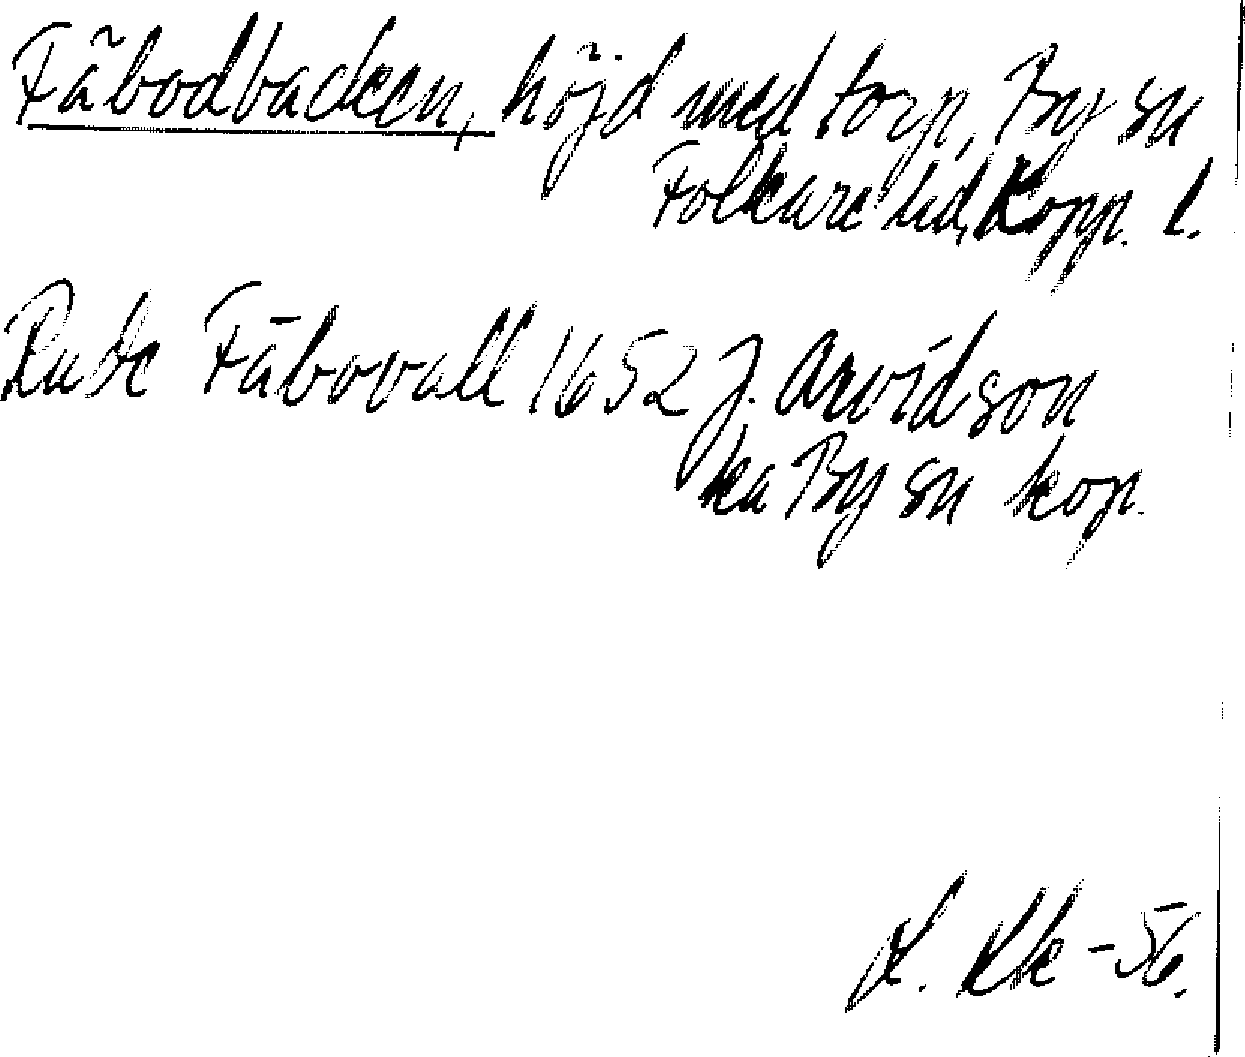 Fäbodbacken, höjd med torp, By sn
Folkare hd, Kopp. l.
Fäbovall 1652 J. Arvidson
ka By sn kop.
-56.